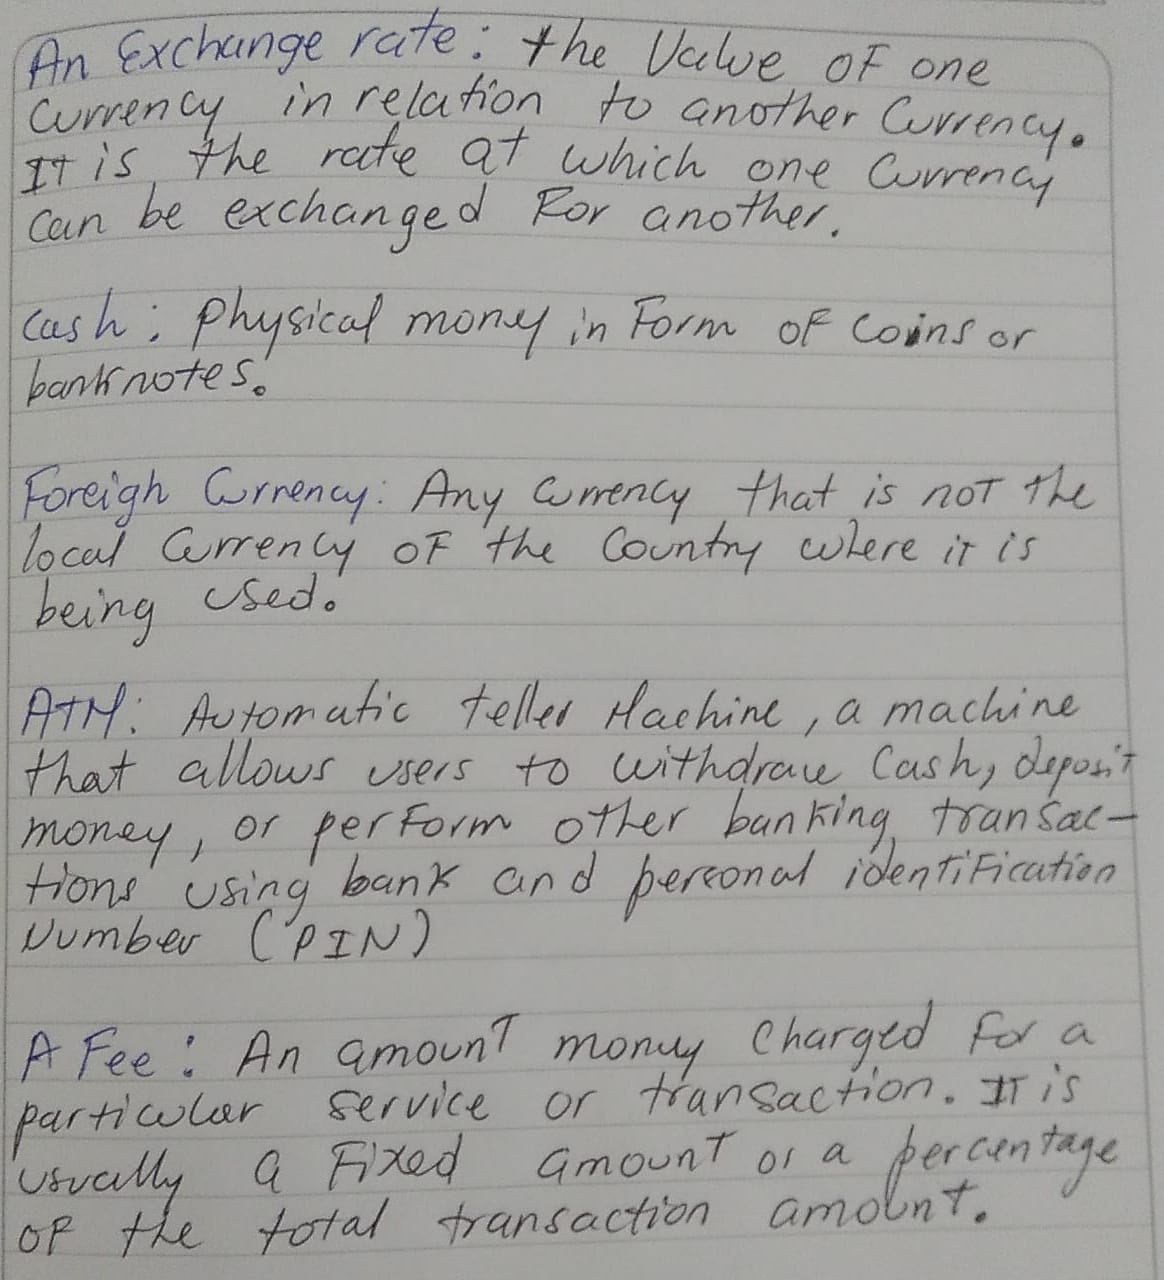 An Exchange rate: the Value of one
Currency in relation to another Currency.
It is the rate at which one Currency
Can be exchanged For another.
Cash: Physical money in Form of Coins or
banknotes.
Foreigh Currency: Any Currency that is not the
local Currency of the Country where it is
being used.
ATM: Automatic teller Machine, a machine
that allows users to withdraw Cash, deposit
money, or perform other banking transac-
tions using bank and personal identification
Number (PIN)
A Fee: An amount money Charged For a
particular service or transaction. It is
usually a Fixed amount or a percentage
of the total transaction amount.